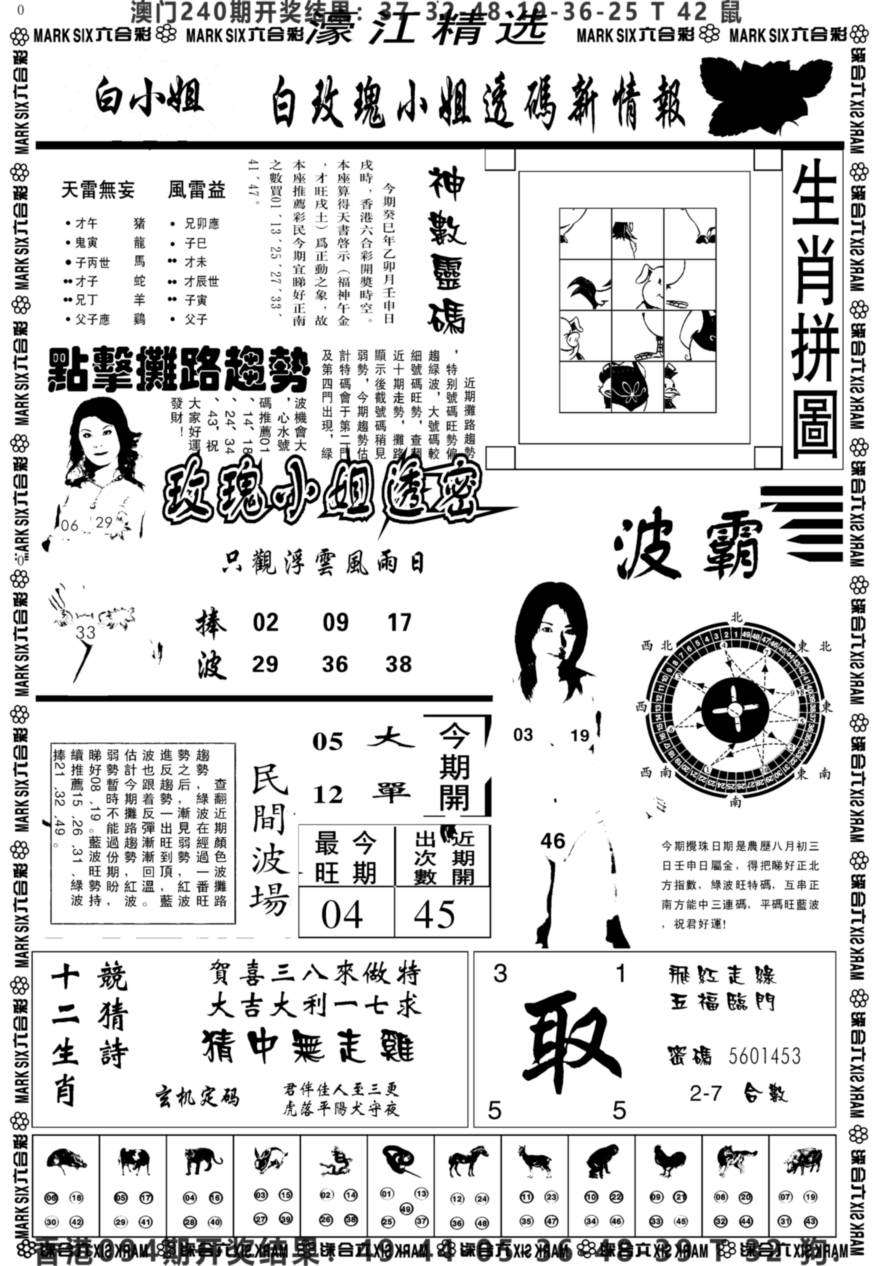 0
澳门240期开奖结果：37-32-48-19-36-25 T 42 鼠
MARK SIX六合彩 MARK SIX六合彩 濠江精选 MARK SIX六合彩 MARK SIX六合彩
白小姐 白玫瑰小姐透碼新情報
天雷無妄 風雷益
才午 豬 兄卯應
鬼寅 龍 子巳
子丙世 馬 才未
才子 蛇 才辰世
兄丁 羊 子寅
父子應 鷄 父子
神數靈碼
今期癸巳年乙卯月壬申日
戌時，香港六合彩開獎時空。
本座算得天書啓示（福神午金
，才旺戌土）爲正動之象，故
本座推薦彩民今期宜睇好正南
之數買01、13、25、27、33、
41、47。
生肖拼圖
點擊攤路趨勢
近期攤路趨勢
，特別號碼旺勢偏
趨綠波，大號碼較
細號碼旺勢，查翻
近十期走勢，攤路
顯示後截號碼稍見
弱勢，今期趨勢估
計特碼會于第二門
及第四門出現，綠
波機會大
，心水號
碼推薦01
、14、18
、24、34
、43，祝
大家好運
發財！
06 29
33
玫瑰小姐透密
只觀浮雲風雨日
捧波
02 09 17
29 36 38
波霸
03 19
46
北
西北 東北
西 東
西南 東南
南
今期攪珠日期是農歷八月初三
日壬申日屬金，得把睇好正北
方指數，綠波旺特碼，互串正
南方能中三連碼，平碼旺藍波
，祝君好運!
查翻近期顏色攤路
趨勢，綠波在經過一波
勢之后，漸見弱，紅番旺
進反趨勢一出旺到勢，藍波
波也跟着反彈漸漸回溫。
估計今期攤路趨勢，紅波
弱勢暫時不能過份期盼，
睇好08、19。藍波旺勢持
續推薦15、26、31，綠波
捧21、32、49。
民間波場
05 大
12 單
今期開
最旺 今期
出次數 近期開
04 45
十二生肖
競猜詩
賀喜三八來做特
大吉大利一七求
猜中無走雞
玄机定码
君伴佳人至三更
虎落平陽犬守夜
3 1
取
5 5
飛紅走綠
五福臨門
密碼 5601453
2-7 合數
06 18 05 17 04 16 03 15 02 14 01 13 12 24 11 23 10 22 09 21 08 20 07 19
49
30 42 29 41 28 40 27 39 26 38 25 37 36 48 35 47 34 46 33 45 32 44 31 43
香港004期开奖结果：49-44-05-36-48-39 T 32 狗.